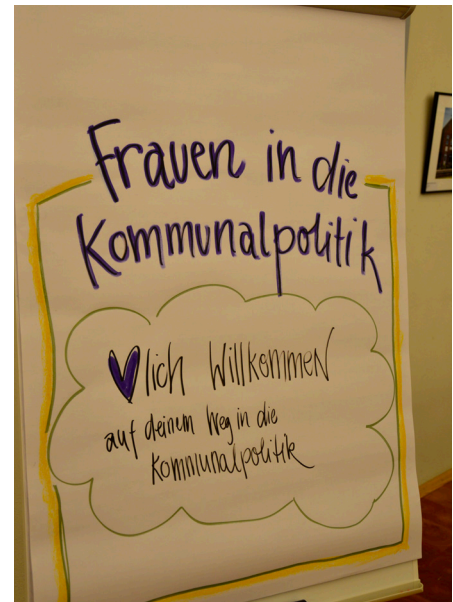 Frauen in die
Kommunalpolitik
♥lich Willkommen
auf deinem Weg in die
Kommunalpolitik